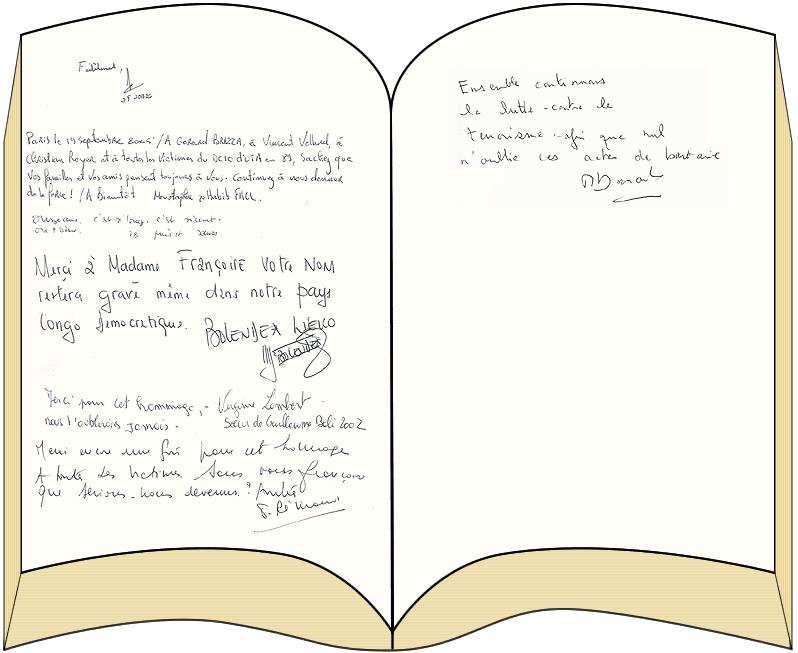 Fidèlement,
Paris le 19 septembre 2005 / A Gérard BREZZA, à Vincent, à
Christian Royer et à toutes les victimes du DC10 d'UTA en 89, Sachez que
vos familles et vos amis pensent toujours à vous. Continuez à nous donner
de la force ! / A Bientôt Mustapha
c'est
Merci à Madame Françoise Votre NOM
restera gravé même dans notre pays
Congo démocratique. BOLENDEA LIEKO
Merci pour cet hommage, - Virginie Lambert -
nous l'oublierons jamais. Sœur de Guillaume Bali 2002
Merci encore une fois pour cet hommage
A toutes les victimes Sans vous françoise
que serions-nous devenus ?
Ensemble continuons
la lutte contre le
terrorisme afin que nul
n'oublie ces actes de barbarie